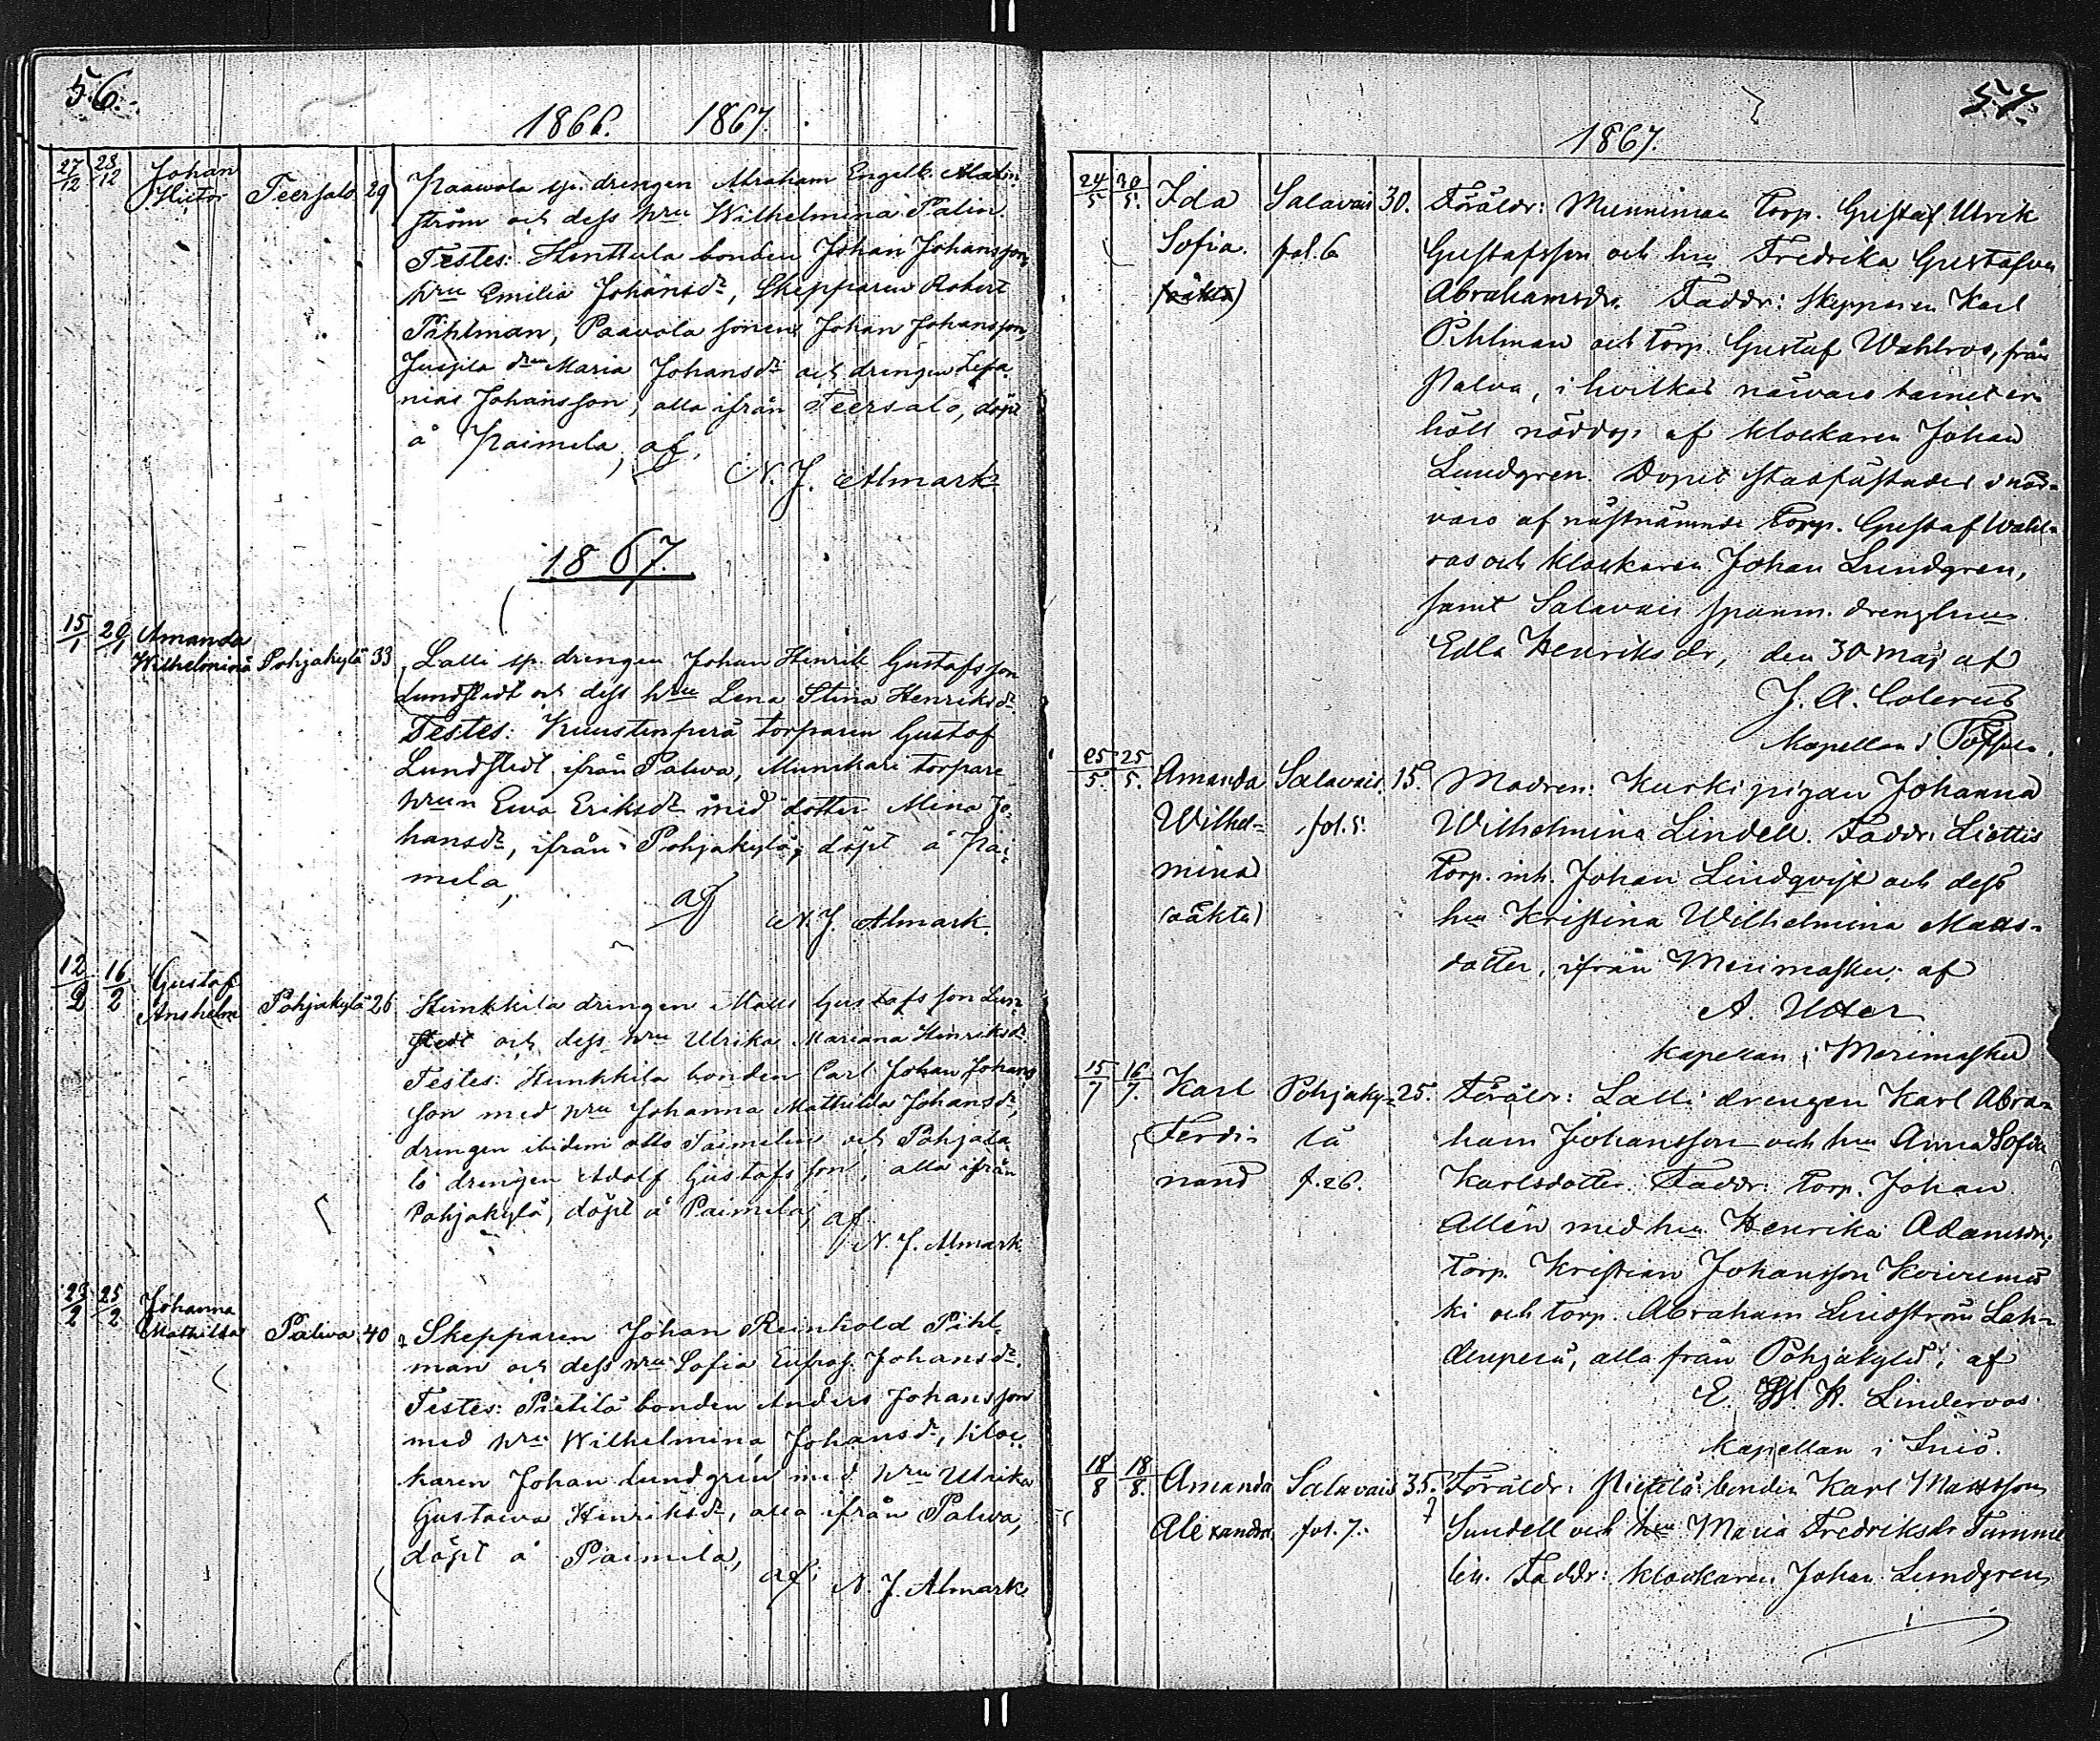 56.
1866. 1867.
27/12 28/12 Johan Teersalo 29 Paawola sp. drengen Abraham Engelb. Malm-
Victor ström och dess hru Wilhelmina Palin.
Testes: Hinttula bonden Johan Johansson,
hru Emilia Johansdr, Skepparen Robert
Pihlman, Paavola sonen Johan Johansson,
Juspila dn Maria Johansdr och drengen Zefa-
nias Johansson, alla ifrån Teersalo, döpt
å Paimela, af
N. J. Almark
1867.
15/1 20/1 Amanda
Wilhelmina Pohjakylä 33 Lalli sp. drengen Johan Henrik Gustafsson
Lundstedt och dess hru Lena Stina Henriksdr.
Testes: Kuustenperä torparen Gustaf
Lundstedt ifrån Palwa, Munikari torpare
hrun Ewa Eriksdr med dotter Mina Jo-
hansdr, ifrån Pohjakylä, döpt å Pai-
mela,
af N. J. Almark.
12/2 16/2 Gustaf
Anshelm Pohjakylä 26 Hunkkila drengen Matts Gustafsson Lun-
stedt och dess hru Ulrika Mariana Henriksdr.
Testes: Hunkkila bonden Carl Johan Johans-
son med hru Johanna Mathilda Johansdr,
drengen ibidem Otto Paimelin och Pohjata-
lo drengen Adolf Gustafsson, alla ifrån
Pohjakylä, döpt å Paimela, af
N. J. Almark
23/2 25/2 Johanna
Mathilda Palwa 40 Skepparen Johan Reinhold Pihl-
man och dess hru Sofia Eufros. Johansdr.
Testes: Pietilä bonden Anders Johansson
med hru Wilhelmina Johansdr, kloc-
karen Johan Lundgrén med hru Ulrika
Gustawa Henriksdr, alla ifrån Palwa,
döpt å Paimela,
af N. J. Almark
57.
1867.
24/5 30/5. Ida Salavais 30. Föräldr: Munninen Torp. Gustaf Ulrik
Sofia. fol. 6 Gustafsson och hru Fredrika Gustafva
(oäkta) Abrahamsdr. Faddr: Skepparen Karl
Pihlman och Torp. Gustaf Wahlros, från
Palva, i hvilkas närvaro barnet er-
höll nöddop af klockaren Johan
Lundgren. Dopet stadfästades i när-
varo af nästnämnde Torp. Gustaf Wahl-
ros och klockaren Johan Lundgren,
samt Salavais spanm. drenghru
Edla Henriksdr, den 30 maj af
J. A. Colerus
Kapellan i
25/5. 25/5. Amanda Salavais. 15. Modren: Kurki pigan Johanna
Wilhel- fol. 5. Wilhelmina Lindell. Faddr:
mina Torp. inh. Johan Lindqvist och dess
(oäkta) hru Kristina Wilhelmina Matts-
dotter, ifrån Merimasku; af
A. Utter
kapellan i Merimasku
15/7 16/7. Karl Pohjaky- 25. Föräldr: Lalli drengen Karl Abra-
Ferdi- lä ham Johansson och hru Anna Sofia
nand f. 26. Karlsdotter. Faddr: Torp. Johan
Allén med hru Henrika Adamsdr,
Torp. Kristian Johansson Koivumä-
ki och torp. Abraham Lindström Leh-
denperä, alla från Pohjakylä; af
E. W. K. Linderoos
kapellan i Iniö.
18/8 18/8. Amanda Salavais 35. Föräldr: Pietilä bonden Karl Mattsson
Alexandra fol. 7. Sundell och hru Maria Fredriksdr Tamme-
lin. Faddr: klockaren Johan Lundgren